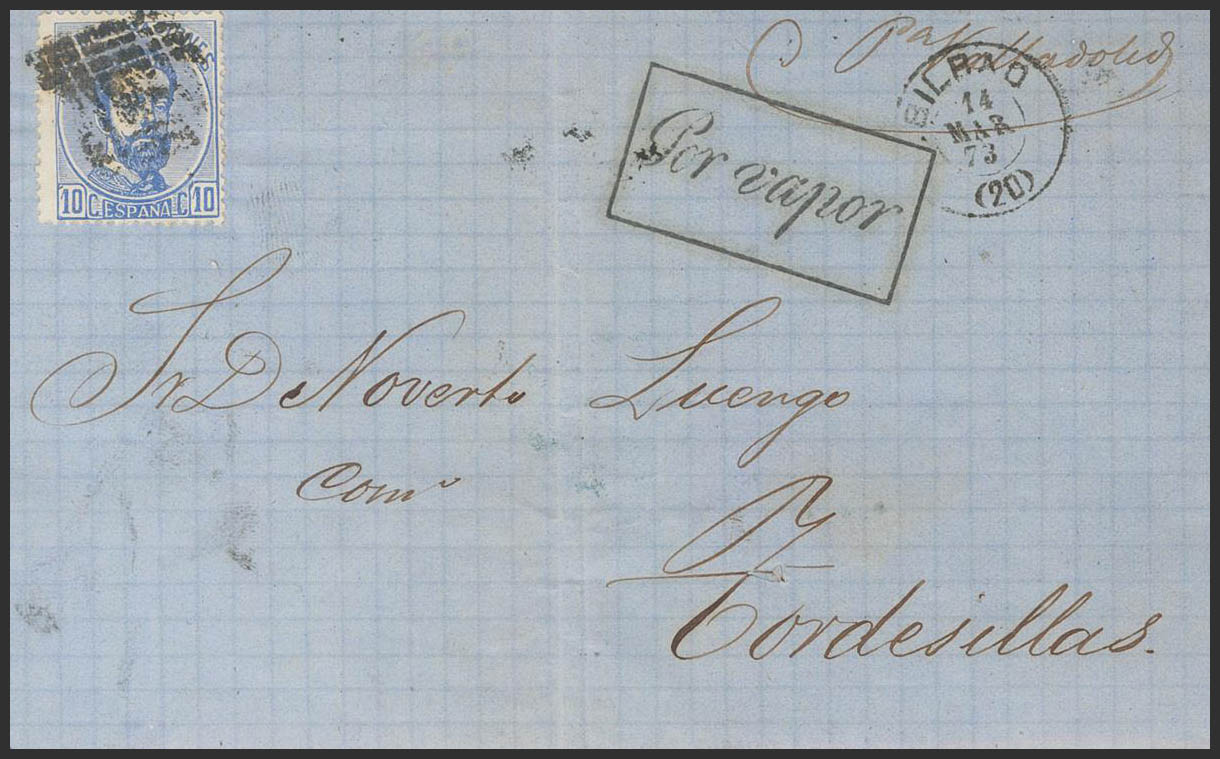 Pa Valladolid
BILBAO
14
MAR
73
(20)
Por vapor
10 C. ESPAÑA C. 10
Sr D Noverto Luengo
Como
Tordesillas.